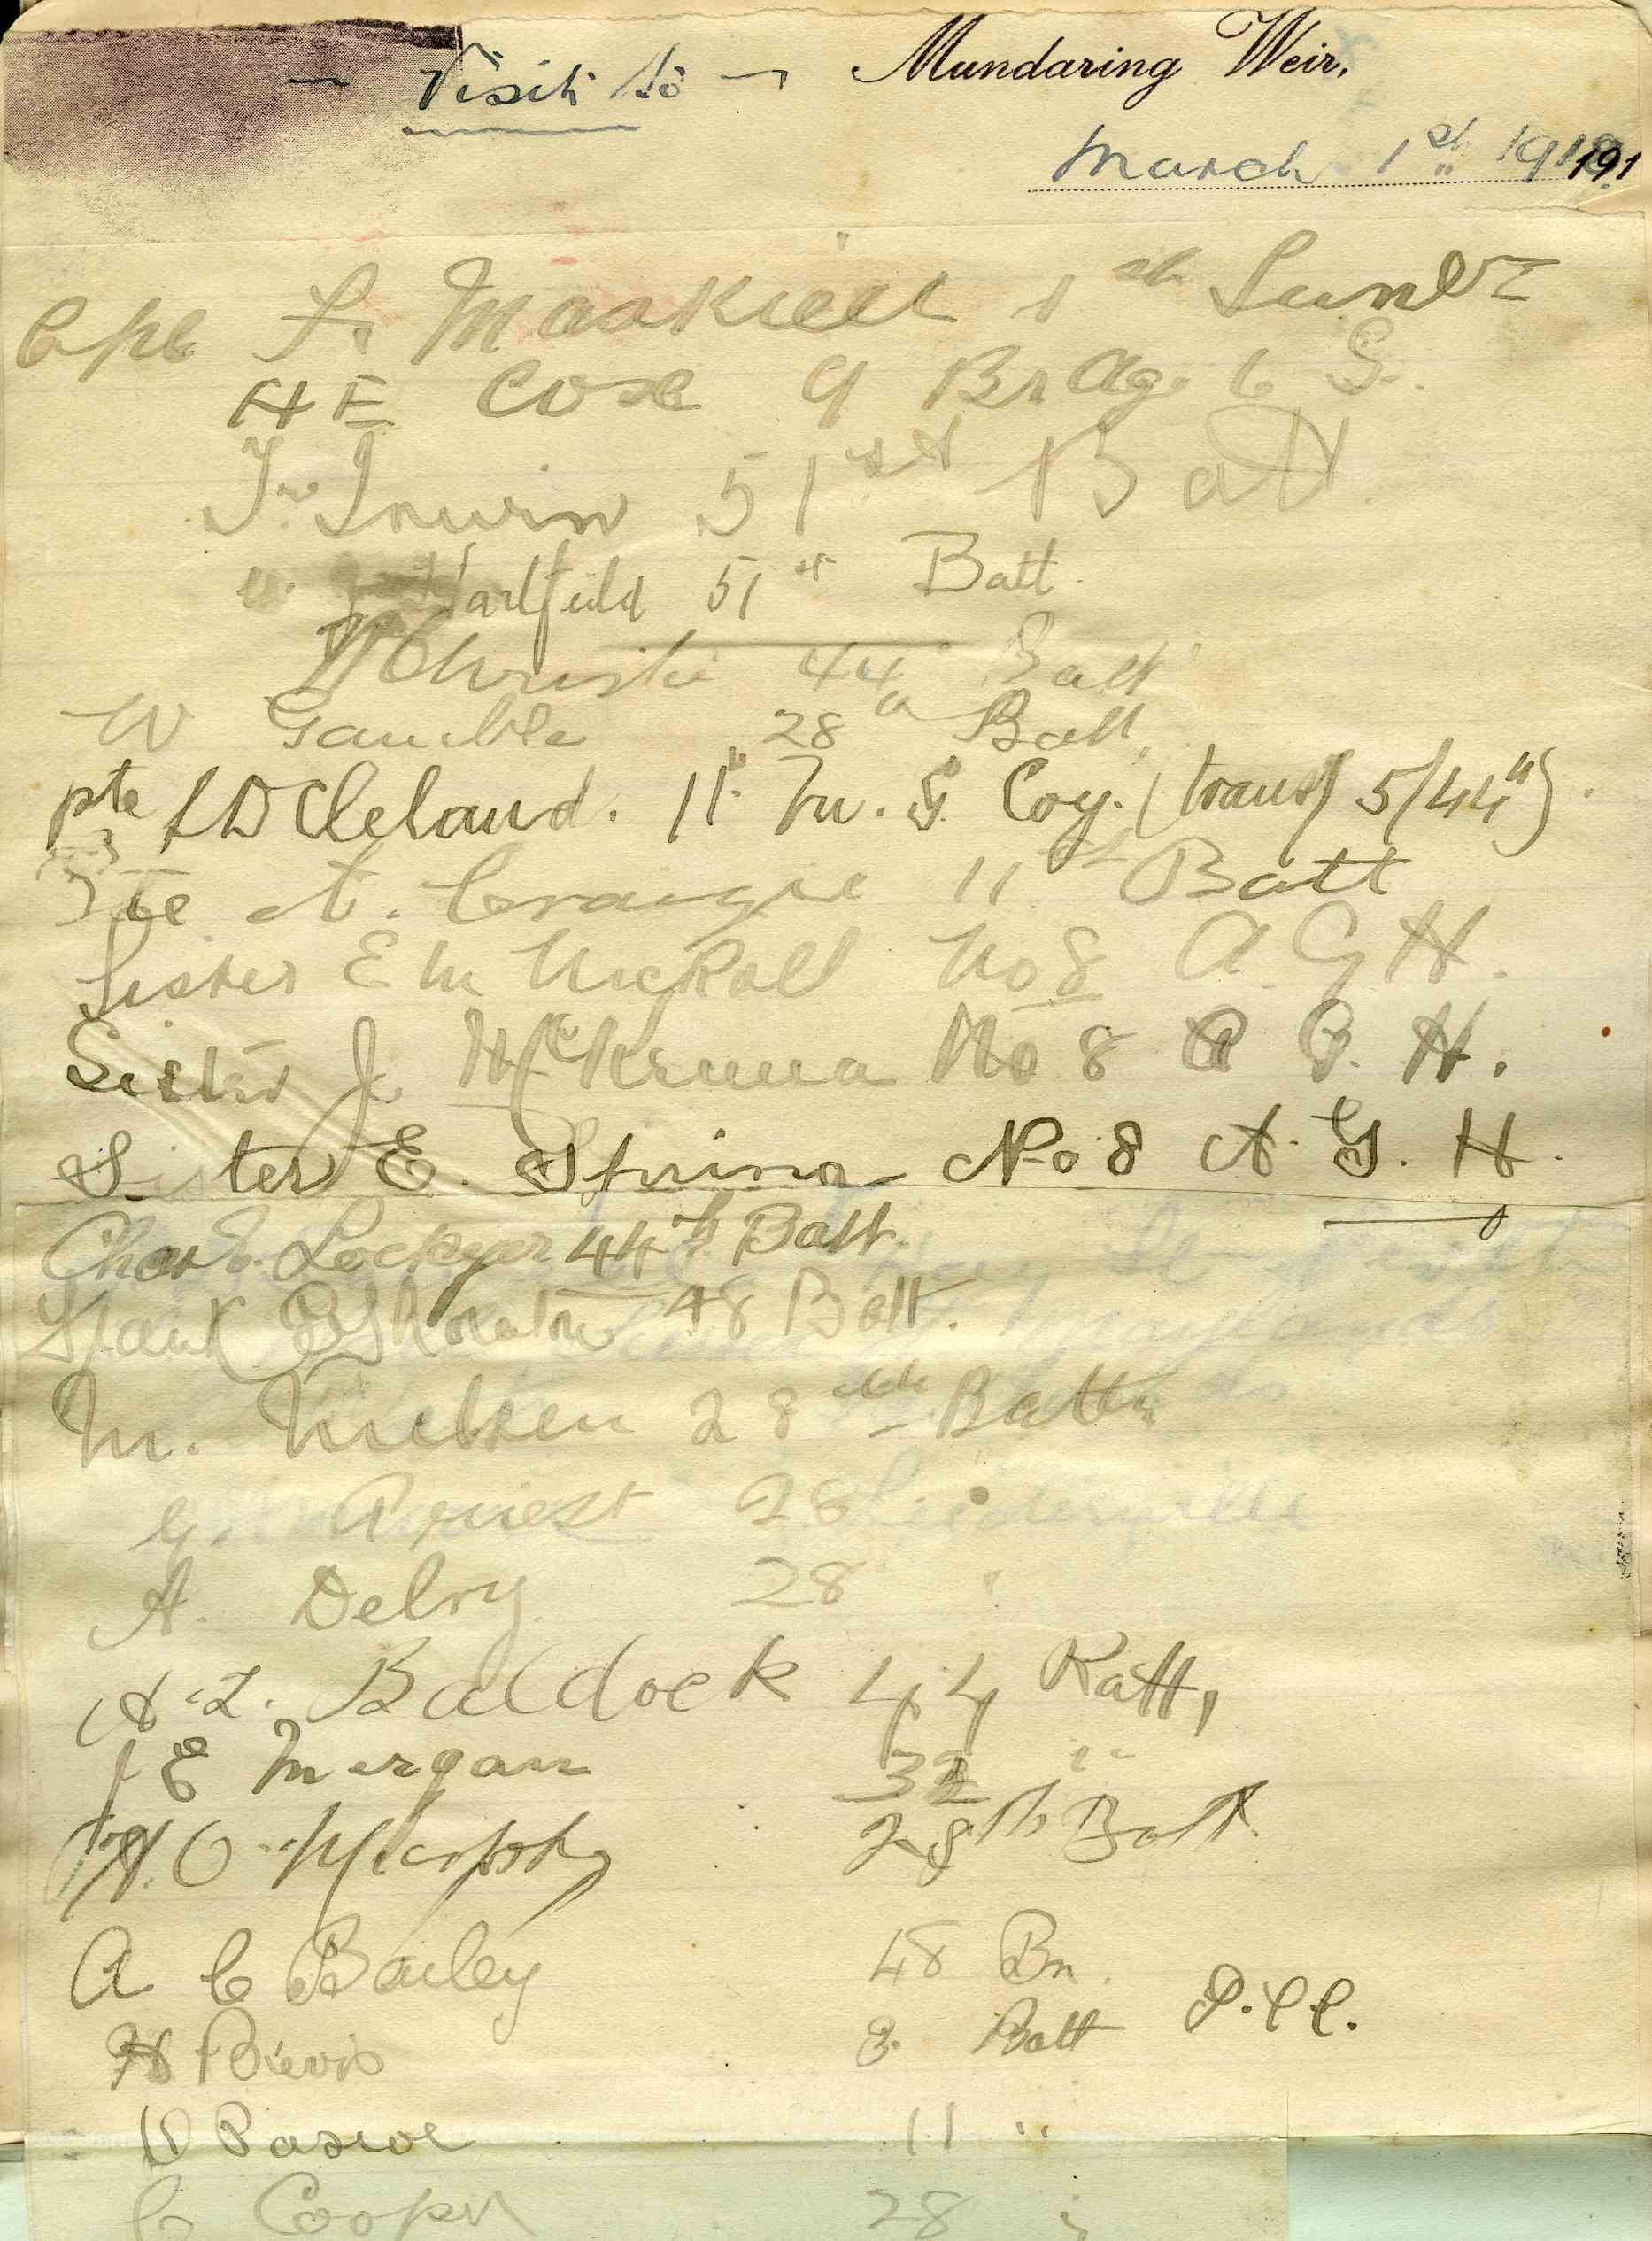 — Visit to — Mundaring Weir,
March 1st 1918 191
Cpl F. Maskiell 1st
H E Cox 9 Brag 6 S.
J. Irwin 51st Batt
Hartfield 51st Batt.
W Christie 44 Batt
W Gamble 28th Batt.
pte L D Cleland. 11th M. G. Coy. (transf 5/44th).
Pte A. Craigie 11th Batt
Sister E M Nickoll No 8 A G H.
Sister J. McKenna No 8 A G. H.
Sister E. Spring No 8 A. G. H.
Chas E. Lockyer 44th Batt.
48 Batt.
M. Nielsen 28th Battn
G. Priest 28 "
A. Delvy 28 "
A. L. Baldock 44 Batt,
J E Morgan 32 "
W. O. Murphy 28th Batt.
A C Bailey 48 Bn.
H Bevis 3. Batt P.C.C.
D Pascoe 11 "
C Cooper 28 "